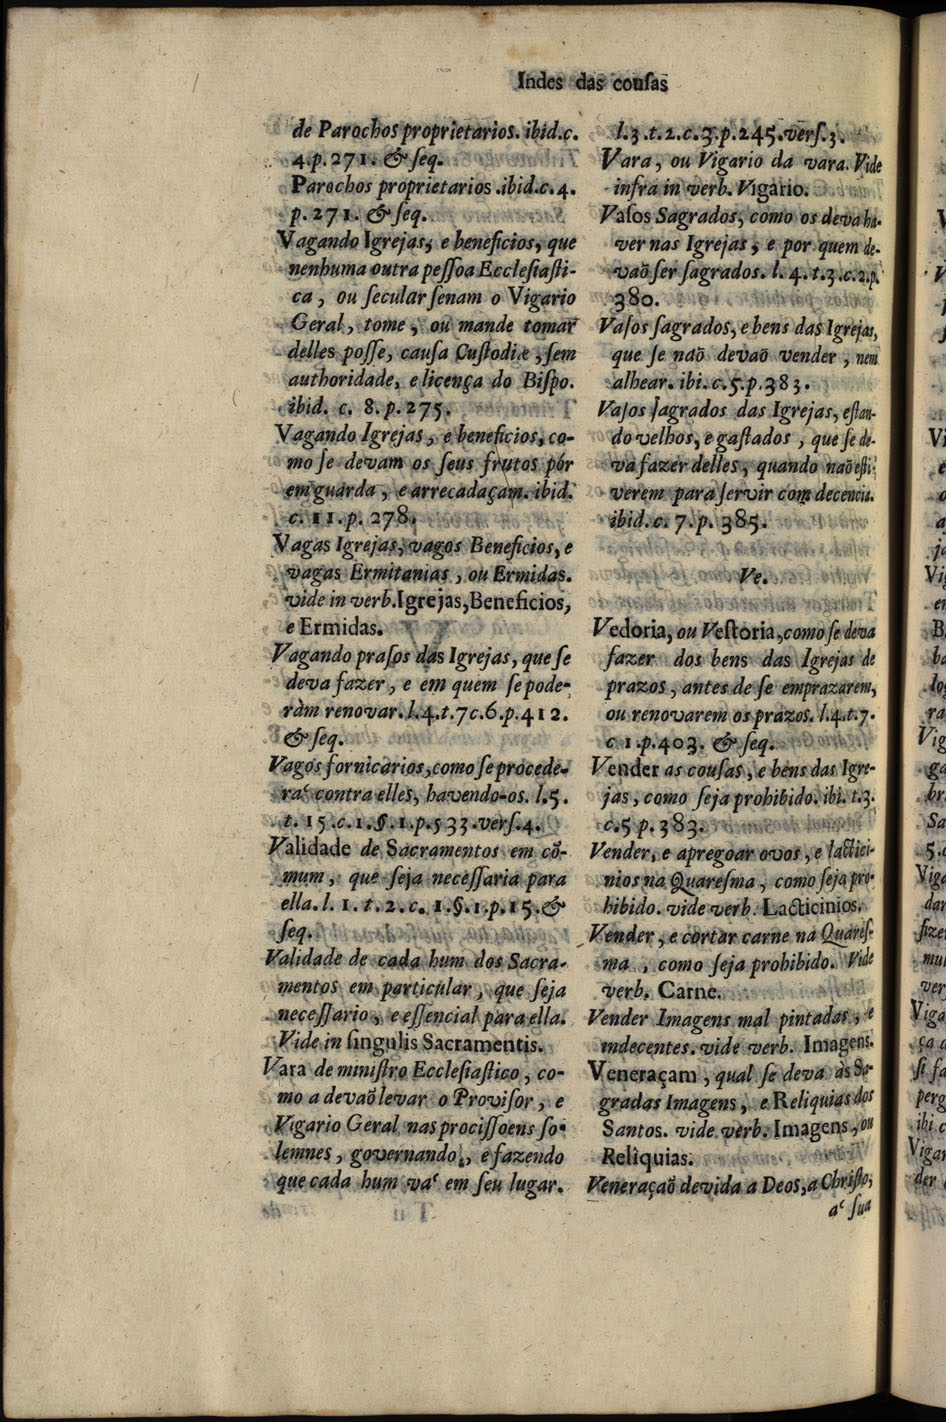 Indes das couſas
de Parochos proprietarios. ibid.c.
4.p.271. & ſeq.
Parochos proprietarios .ibid.c.4.
p.271. & ſeq.
Vagando Igrejas, e beneficios, que
nenhuma outra peſſoa Eccleſiaſti-
ca, ou ſecular ſenam o Vigario
Geral, tome, ou mande tomar
delles poſſe, cauſa Cuſtodiæ, ſem
authoridade, e licença do Biſpo.
ibid. c. 8. p. 275.
Vagando Igrejas, e beneficios, co-
mo ſe devam os ſeus frutos pór
em guarda, e arrecadaçam. ibid.
c. 11. p. 278.
Vagas Igrejas, vagos Beneficios, e
vagas Ermitanias, ou Ermidas.
vide in verb. Igrejas, Beneficios,
e Ermidas.
Vagando praſos das Igrejas, que ſe
deva fazer, e em quem ſe pode-
ràm renovar. l.4.t.7c.6.p.412.
& ſeq.
Vagos fornicarios, como ſe procede-
ra' contra elles, havendo-os. l.5.
t. 15.c.1.§.1.p.533.verſ.4.
Validade de Sacramentos em cõ-
mum, que ſeja neceſſaria para
ella. l. 1. t. 2. c. 1.§.1.p.15.&
ſeq.
Validade de cada hum dos Sacra-
mentos em particular, que ſeja
neceſſario, e eſſencial para ella.
Vide in ſingulis Sacramentis.
Vara de miniſtro Eccleſiaſtico, co-
mo a devaõ levar o Proviſor, e
Vigario Geral nas prociſſoens ſo-
lemnes, governando, e fazendo
que cada hum va' em ſeu lugar.
l.3.t.2.c.3.p.245.verſ.3.
Vara, ou Vigario da vara. Vide
infra in verb. Vigario.
Vaſos Sagrados, como os deva ha-
ver nas Igrejas, e por quem de-
vaõ ſer ſagrados. l. 4. t.3.c.2.p.
380.
Vaſos ſagrados, e bens das Igrejas,
que ſe naõ devaõ vender, nem
alhear. ibi. c.5.p.383.
Vaſos ſagrados das Igrejas, eſtan-
do velhos, e gaſtados, que ſe de-
va fazer delles, quando naõ eſti-
verem para ſervir com decencia.
ibid.c. 7.p. 385.
Ve.
Vedoria, ou Veſtoria, como ſe deva
fazer dos bens das Igrejas de
prazos, antes de ſe emprazarem,
ou renovarem os prazos. l.4.t.7.
c 1.p.403. & ſeq.
Vender as couſas, e bens das Igre-
jas, como ſeja prohibido. ibi. t.3.
c.5 p.383.
Vender, e apregoar ovos, e lactici-
nios na Quareſma, como ſeja pro-
hibido. vide verb. Lacticinios.
Vender, e cortar carne na Quareſ-
ma, como ſeja prohibido. Vide
verb. Carne.
Vender Imagens mal pintadas, e
indecentes. vide verb. Imagens.
Veneraçam, qual ſe deva às Sa-
gradas Imagens, e Reliquias dos
Santos. vide verb. Imagens, ou
Reliquias.
Veneraçaõ devida a Deos, a Chriſto,
a' ſua